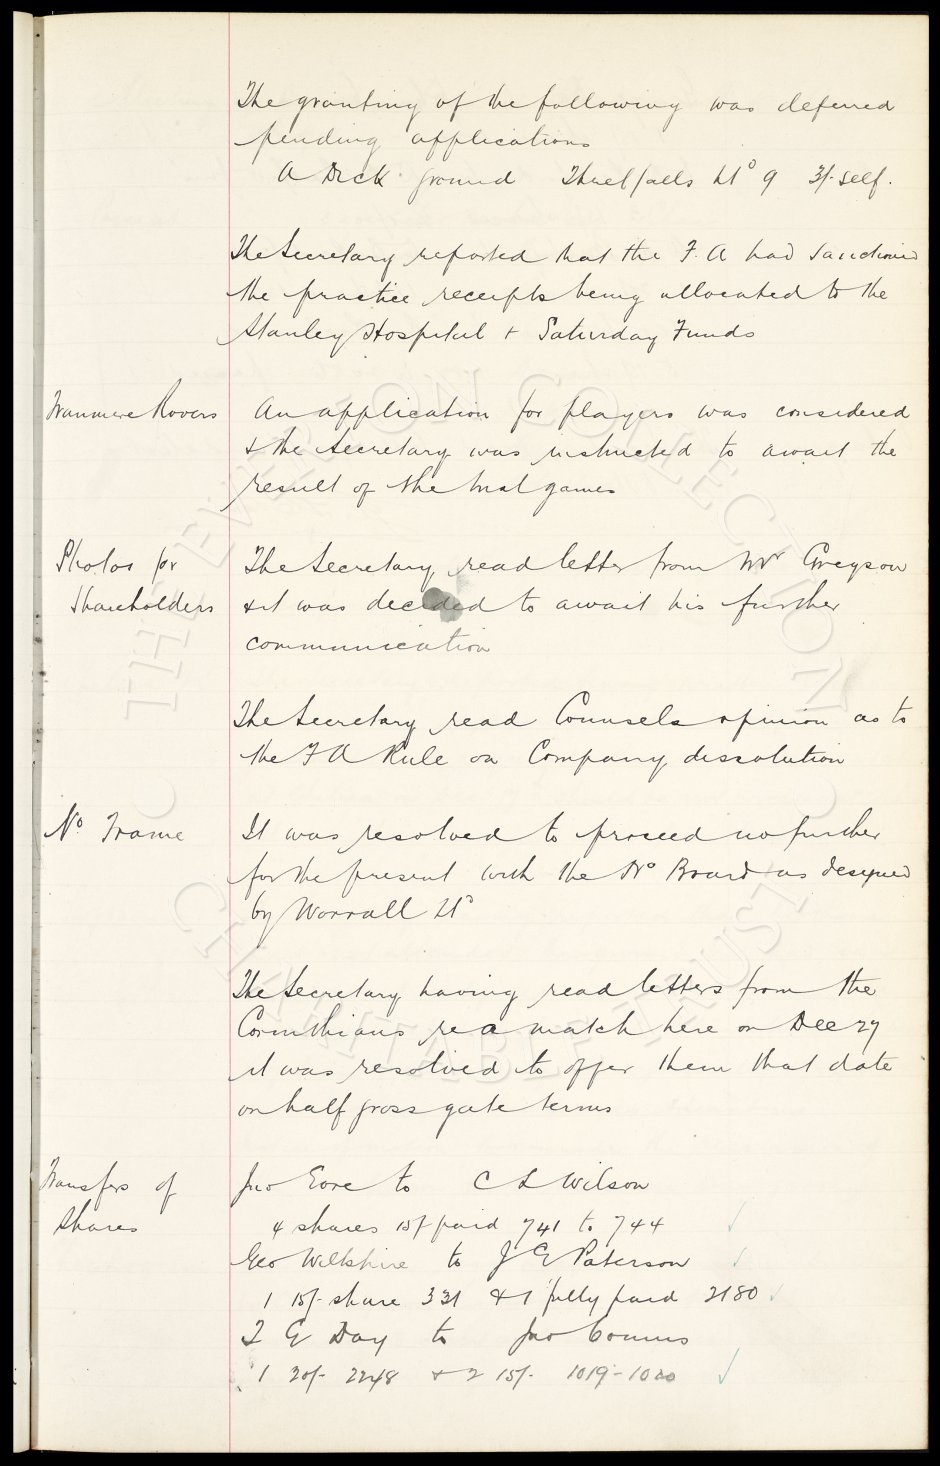 The granting of the following was deferred
pending applications
A Dick ground Threlfalls Ltd 9 3/- self.
The Secretary reported that the F. A had sanctioned
the practice receipts being allocated to the
Stanley Hospital + Saturday Funds
Tranmere Rovers An application for players was considered
+ the Secretary was instructed to await the
result of the trial games
Photos for The Secretary read letter from Mr Greyson
Shareholders + it was decided to await his further
communication
The Secretary read Counsels opinion as to
the F A Rule on Company dissolution
No Frame It was resolved to proceed no further
for the present with the No Board as designed
by Worrall Ltd
The Secretary having read letters from the
Corinthians re a match here on Dec 27
it was resolved to offer them that date
on half gross gate terms
Transfers of Jno Eore to C L Wilson
Shares 4 shares 15/ paid 741 to 744
Geo Wiltshire to J E Paterson
1 15/- share 331 + 1 fully paid 2180
T G Day to Jno
1 20/- 2248 + 2 15/- 1019-1020
THE EVERTON COLLECTION
CHARITABLE TRUST